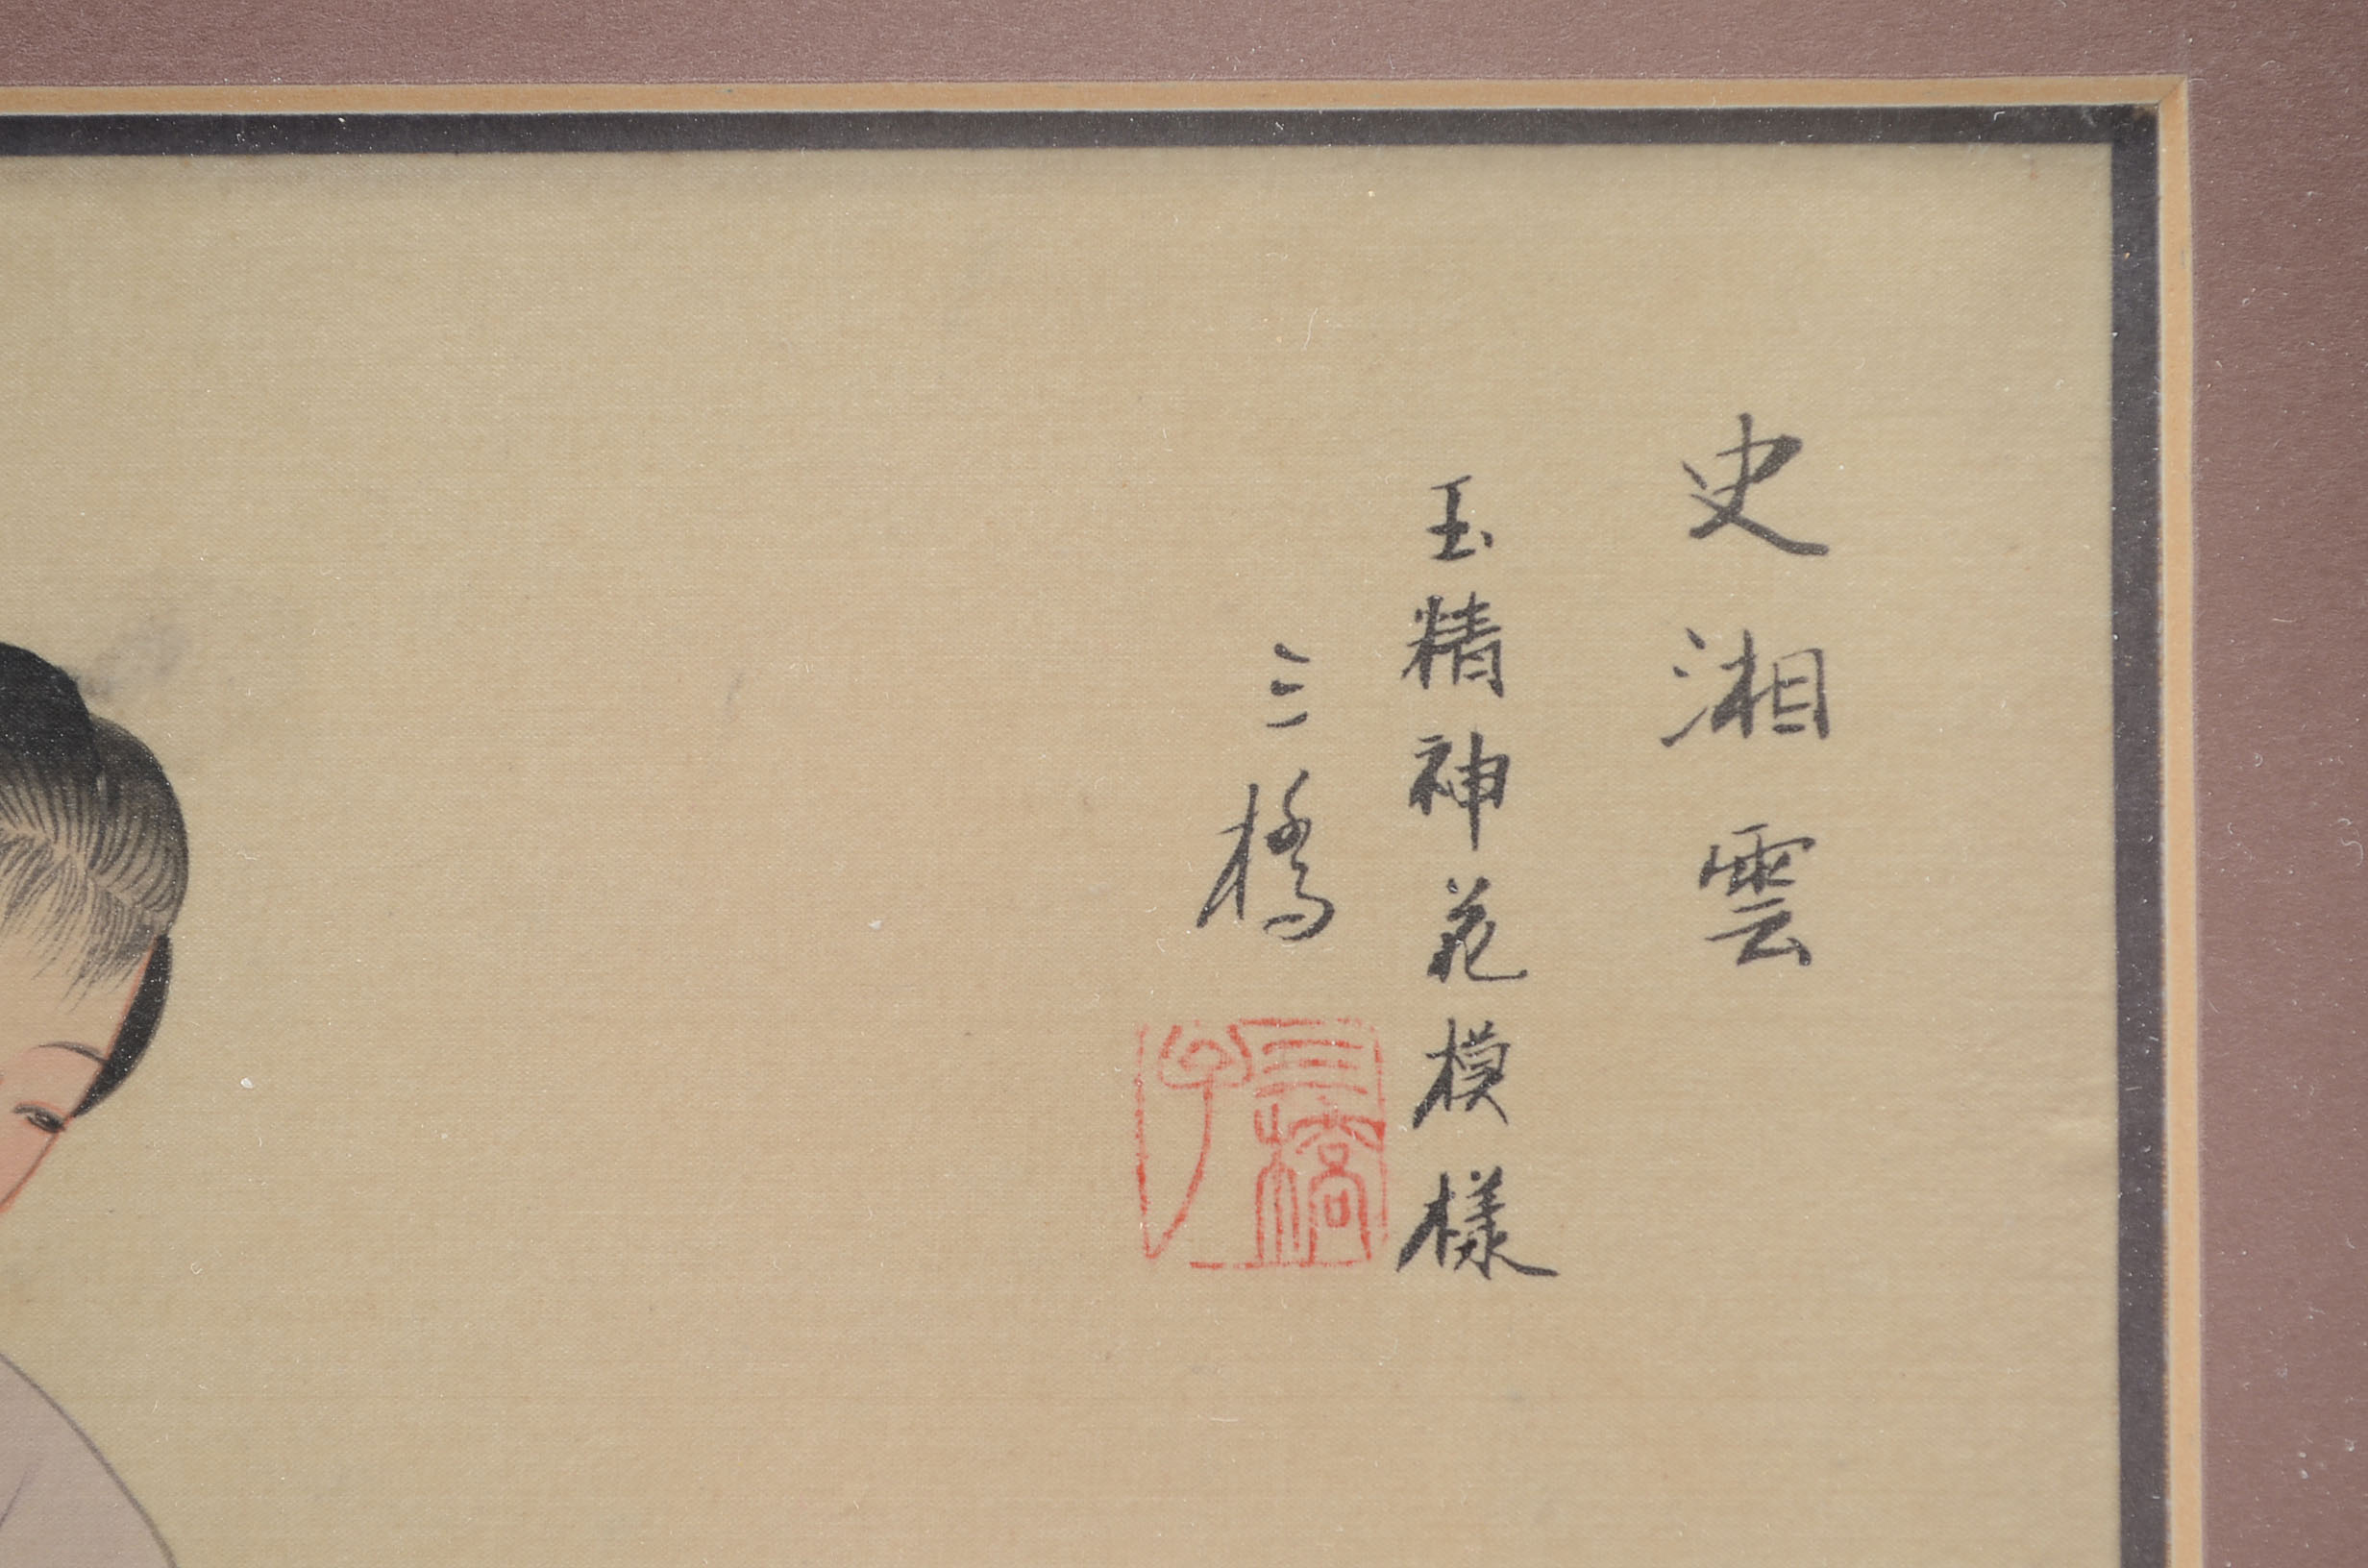 史湘雲
玉精神花模樣
三橋
三橋
子